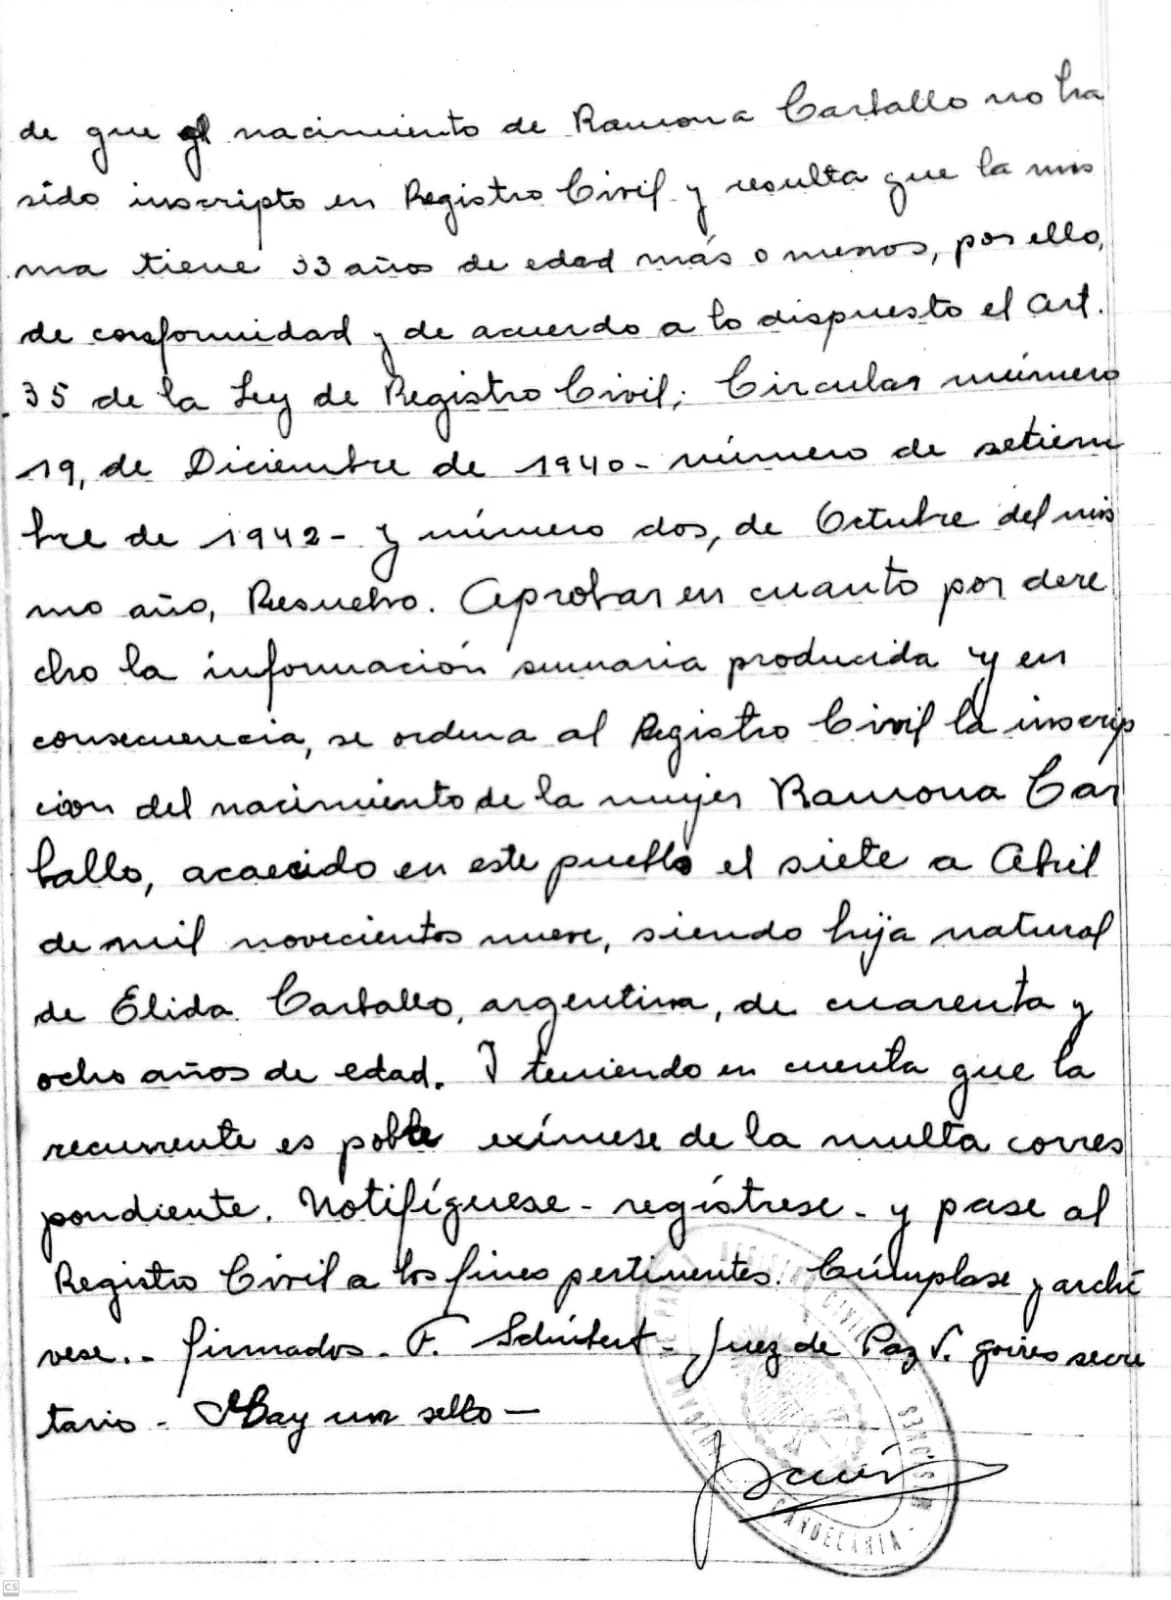 de que el nacimiento de Ramona Carballo no ha
sido inscripto en Registro Civil y resulta que la mis
ma tiene 33 años de edad más o menos, por ello,
de conformidad y de acuerdo a lo dispuesto el Art.
35 de la Ley de Registro Civil; Circular número
19, de Diciembre de 1940- número de setiem
bre de 1942- y número dos, de Octubre del mis
mo año, Resuelvo. Aprobar en cuanto por dere
cho la información sumaria producida y en
consecuencia, se ordena al Registro Civil la inscrip
cion del nacimiento de la mujer Ramona Car
ballo, acaecido en este pueblo el siete a Abril
de mil novecientos nueve, siendo hija natural
de Elida Carballo, argentina, de cuarenta y
ocho años de edad. Y teniendo en cuenta que la
recurrente es pobre exímese de la multa corres
pondiente. Notifíquese - regístrese - y pase al
Registro Civil a los fines pertinentes. Cúmplase y archí
vese.- firmados - F. Schubert - Juez de Paz V. secre
tario - Hay un sello -
REGISTRO CIVIL
MISIONES
CANDELARIA
CS